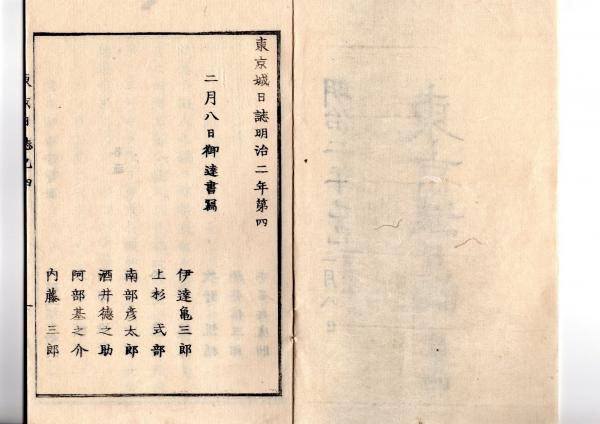 東京城日誌明治二年第四
二月八日御達書寫
伊達亀三郎
上杉式部
南部彦太郎
酒井徳之助
阿部基之介
内藤三郎